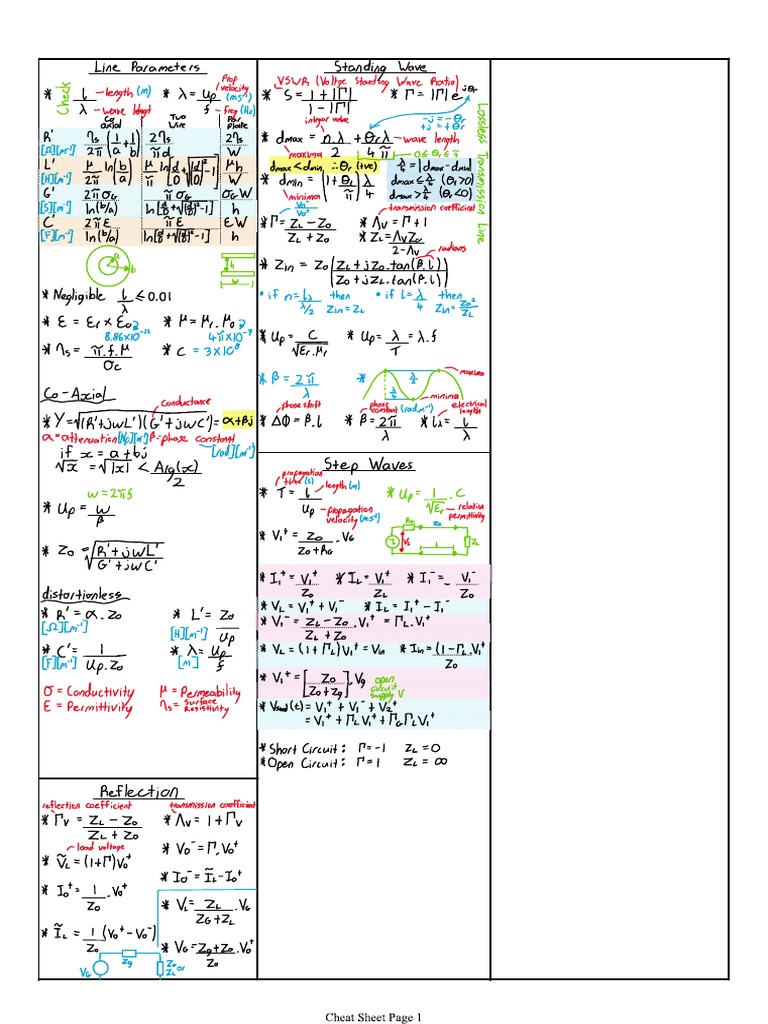 Line Parameters
Check
* l/λ
length (m)
wave lengt
* λ = Up/f
Prop velocity (ms⁻¹)
freq (Hz)
Co axial
Two Wire
Par plate
R' [Ω][m⁻¹] ηs/2π (1/a + 1/b) 2ηs/πd 2ηs/W
L' [H][m⁻¹] μ/2π ln(b/a) μ/π ln[d/D + √((d/D)² - 1)] μh/W
G' [S][m⁻¹] 2πσG/ln(b/a) πσG/ln[d/D + √((d/D)² - 1)] σG W/h
C' [F][m⁻¹] 2πε/ln(b/a) πε/ln[d/D + √((d/D)² - 1)] εW/h
a
b
h
W
* Negligible l/λ ≤ 0.01
* ε = εr × ε0
8.86×10⁻¹²
* μ = μr . μ0
4π×10⁻⁷
* ηs = π.f.μ/σc
* C = 3×10⁸
Co-Axial
conductance
* γ = √((R'+jωL')(G'+jωC')) = α+βj
α = attenuation [Np][m⁻¹] β-phase constant [rad][m⁻¹]
if x = a+bj
√x = √|x| < Arg(x)/2
ω = 2πf
* Up = ω/β
* Z0 = √((R'+jωL')/(G'+jωC'))
distortionless
* R' = α.Z0
[Ω][m⁻¹]
* L' = Z0/Up
[H][m⁻¹]
* C' = 1/(Up.Z0)
[F][m⁻¹]
* λ = Up/f
[m]
σ = Conductivity
μ = Permeability
ε = Permittivity
ηs = Surface Resistivity
Reflection
reflection coefficient
transmission coefficient
* Γv = (ZL - Z0)/(ZL + Z0)
* Λv = 1+Γv
load voltage
* ṼL = (1+Γ)V0⁺
* V0⁻ = Γ.V0⁺
* I0⁺ = 1/Z0 . V0⁺
* I0⁻ = ĨL - I0⁺
* VL = ZL/(ZG+ZL) . VG
* ĨL = 1/Z0 (V0⁺ - V0⁻)
* VG = (Zg+Z0)/Z0 . V0⁺
VG
Zg
Z0 or ZL
Standing Wave
VSWR (Voltge Standing Wave Ratio)
* S = (1+|Γ|)/(1-|Γ|)
* Γ = |Γ| e^jθr
-j = -θr
+j = +θr
integer value
* dmax = n.λ/2 + θrλ/4π
wave length
maxima
0 ≤ θr ≤ π
dmax < dmin ∴ θr (+ve)
* dmin = (1+θr/π) λ/4
minima
λ/4 = |dmax - dmin|
dmax ≤ λ/4 (θr>0)
dmax > λ/4 (θr<0)
Lossless Transmission Line
V0⁻/V0⁺
transmission coefficient
* Γ = (ZL - Z0)/(ZL + Z0)
* Λv = Γ+1
* ZL = ΛvZ0/(2-Λv)
radians
* Zin = Z0 ((ZL + jZ0.tan(β.l))/(Z0 + jZL.tan(β.l)))
• if n = l/(λ/2) then Zin = ZL
• if l = λ/4 then Zin = Z0²/ZL
* Up = C/√(εr.μr)
* Up = λ/T = λ.f
* β = 2π/λ
*
λ/2
λ/2
maxima
minima
phase shift
phase constant (radm⁻¹)
electrical length
* ΔΦ = β.l
* β = 2π/λ
* lλ = l/λ
Step Waves
propagation time (s)
length (m)
* T = l/Up
propagation velocity (ms⁻¹)
* Up = 1/√εr . C
relative permittivity
* V1⁺ = Z0/(Z0+RG) . VG
RG
Z0
VG
ZL
l
* I1⁺ = V1⁺/Z0
* IL = V1⁺/ZL
* I1⁻ = -V1⁻/Z0
* VL = V1⁺ + V1⁻
* IL = I1⁺ - I1⁻
* V1⁻ = (ZL - Z0)/(ZL + Z0) . V1⁺ = ΓLV1⁺
* VL = (1+ΓL)V1⁺ = VG
* IIn = (1-ΓL)V1⁺/Z0
* V1⁺ = [Z0/(Z0+Zg)] . Vg
open circuit supply V
* Vload(t) = V1⁺ + V1⁻ + V2⁺
= V1⁺ + ΓLV1⁺ + ΓGΓLV1⁺
* Short Circuit: Γ=-1 ZL=0
* Open Circuit: Γ=1 ZL=∞
Cheat Sheet Page 1